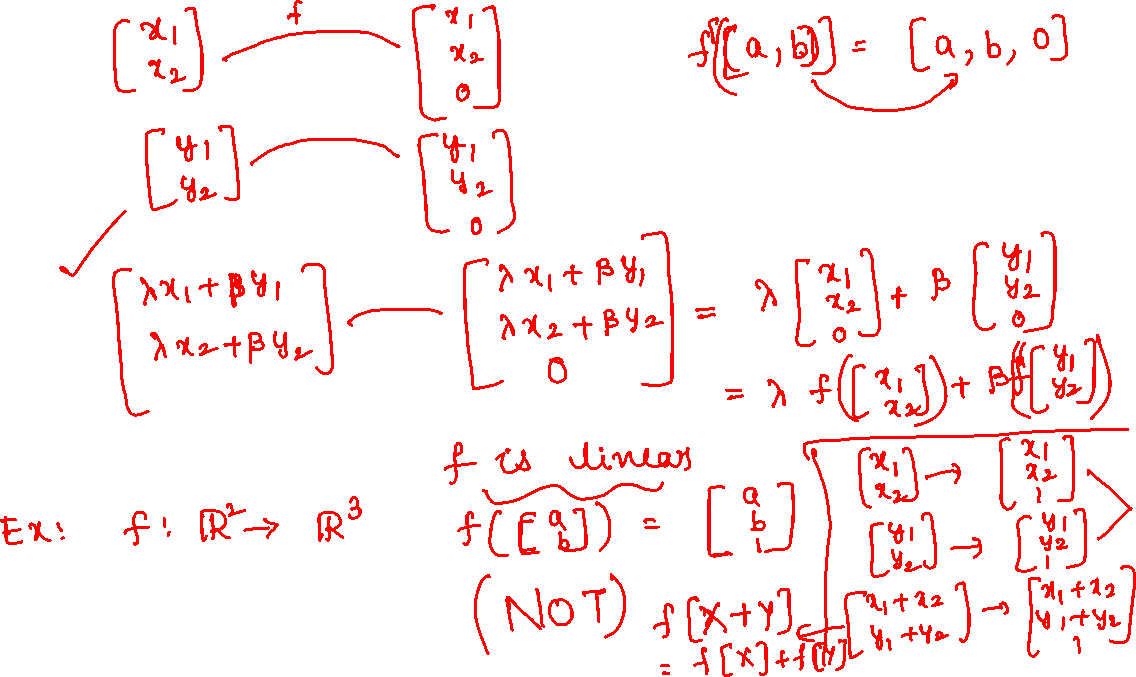 [x₁ x₂] f [x₁ x₂ 0]
f([a, b]) = [a, b, 0]
[y₁ y₂] [y₁ y₂ 0]
[λx₁ + βy₁ λx₂ + βy₂] [λx₁ + βy₁ λx₂ + βy₂ 0] = λ [x₁ x₂ 0] + β [y₁ y₂ 0]
= λ f([x₁ x₂]) + β f([y₁ y₂])
f is linear
Ex: f: ℝ² → ℝ³ f([a b]) = [a b 1]
(NOT)
f[X+Y]
= f[X] + f[Y]
[x₁ x₂] → [x₁ x₂ 1]
[y₁ y₂] → [y₁ y₂ 1]
[x₁ + x₂ y₁ + y₂] → [x₁ + x₂ y₁ + y₂ 1]